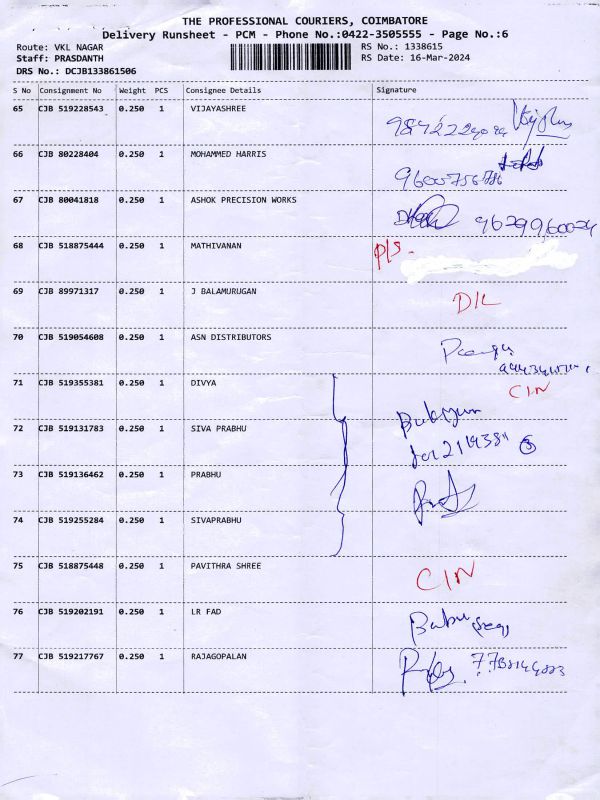 THE PROFESSIONAL COURIERS, COIMBATORE
Delivery Runsheet - PCM - Phone No.:0422-3505555 - Page No.:6
Route: VKL NAGAR
RS No.: 1338615
Staff: PRASDANTH
RS Date: 16-Mar-2024
DRS No.: DCJB133861506
S No Consignment No Weight PCS Consignee Details Signature
65 CJB 519228543 0.250 1 VIJAYASHREE
66 CJB 80228404 0.250 1 MOHAMMED HARRIS
9600756786
67 CJB 80041818 0.250 1 ASHOK PRECISION WORKS
68 CJB 518875444 0.250 1 MATHIVANAN
P/S-
69 CJB 89971317 0.250 1 J BALAMURUGAN
D/L
70 CJB 519054608 0.250 1 ASN DISTRIBUTORS
71 CJB 519355381 0.250 1 DIVYA
CIN
72 CJB 519131783 0.250 1 SIVA PRABHU
73 CJB 519136462 0.250 1 PRABHU
74 CJB 519255284 0.250 1 SIVAPRABHU
75 CJB 518875448 0.250 1 PAVITHRA SHREE
CIN
76 CJB 519202191 0.250 1 LR FAD
Babu
77 CJB 519217767 0.250 1 RAJAGOPALAN